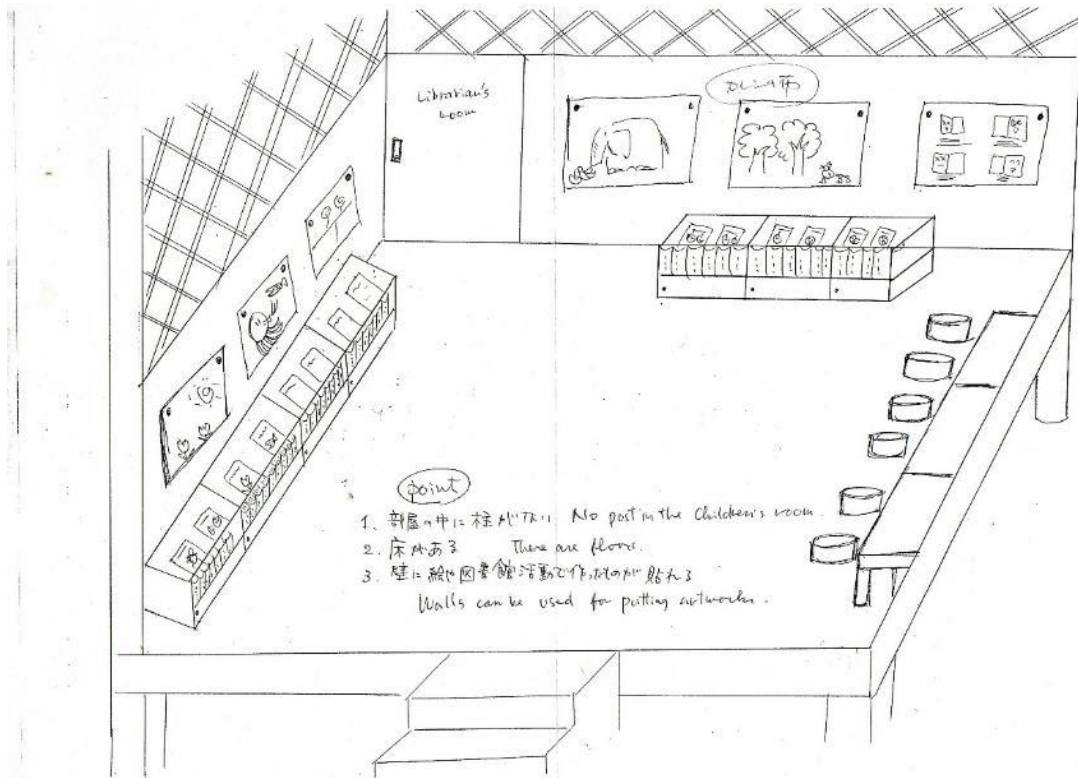 Librarian's
room
point
1. 部屋の中に柱がない No post in the Children's room.
2. 床がある There are floors.
3. 壁に絵や図書館活動で作ったものが貼れる
Walls can be used for putting artworks.